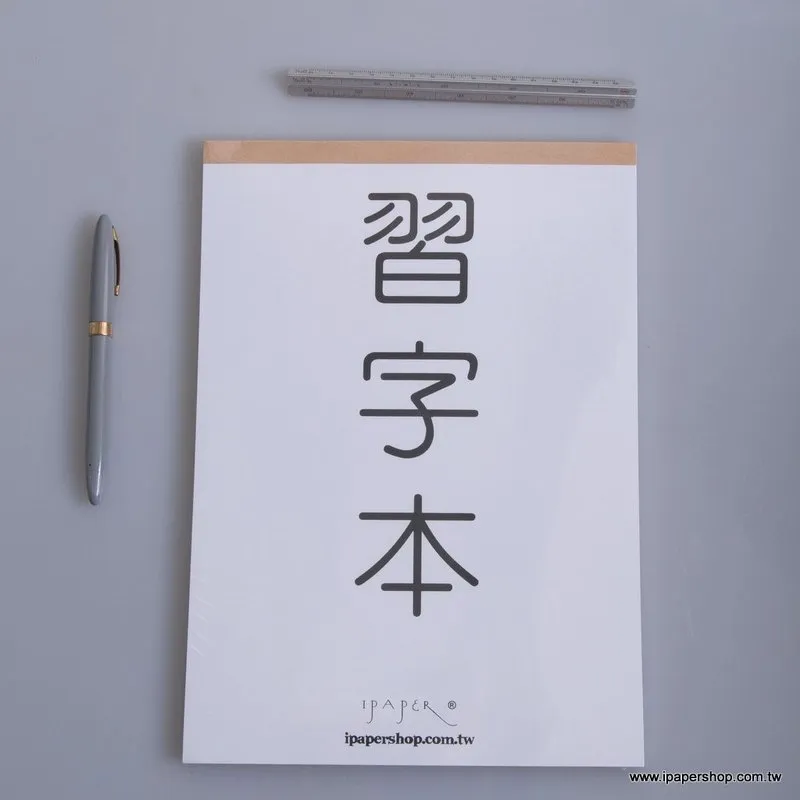 習字本
IPAPER®
ipapershop.com.tw
www.ipapershop.com.tw